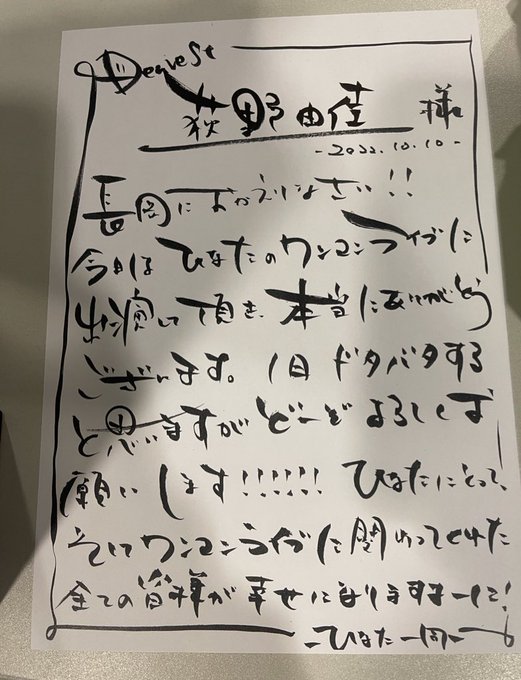 Dearest
荻野由佳 様
-2022.10.10-
長岡におかえりなさい!!
今日は ひなたのワンマンライブに
出演して頂き、本当にありがとう
ございます。1日ドタバタする
と思いますが どーぞよろしくお
願いします!!!!!! ひなたにとって、
そしてワンマンライブに関わってくれた
全ての皆様が幸せになりますよーに!
-ひなた一同-